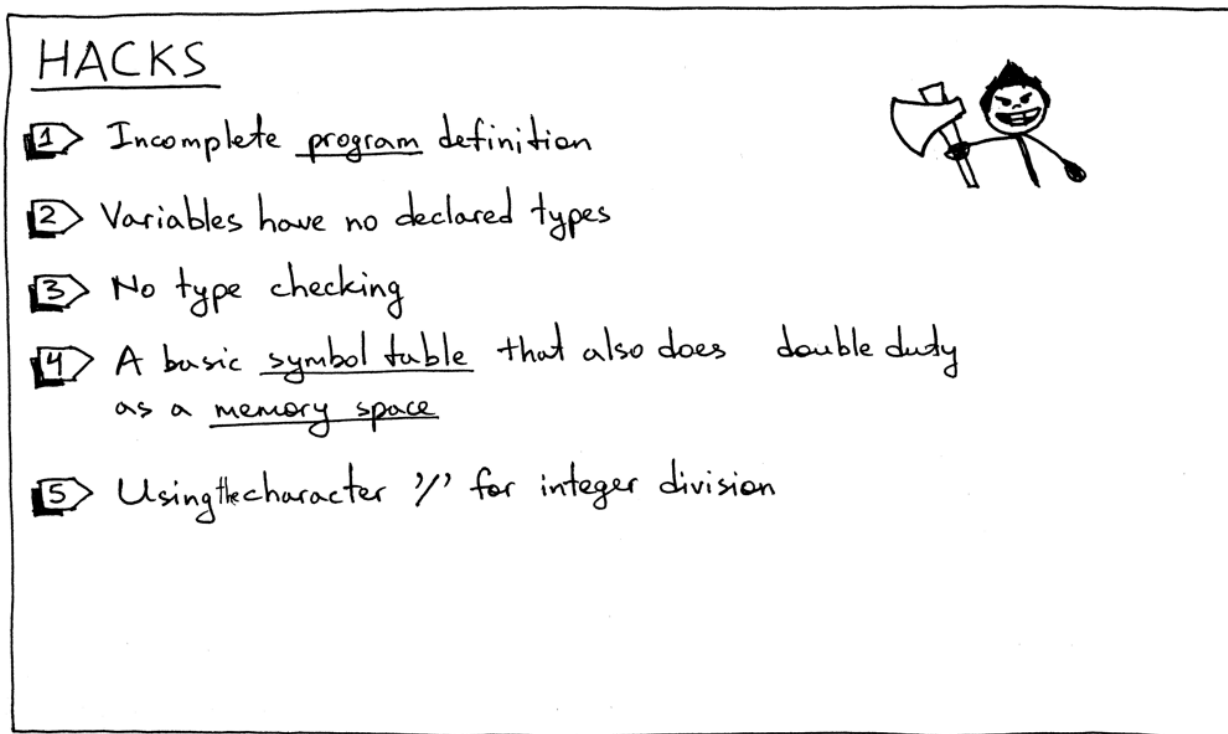 HACKS
1 Incomplete program definition
2 Variables have no declared types
3 No type checking
4 A basic symbol table that also does double duty
as a memory space
5 Using the character '/' for integer division